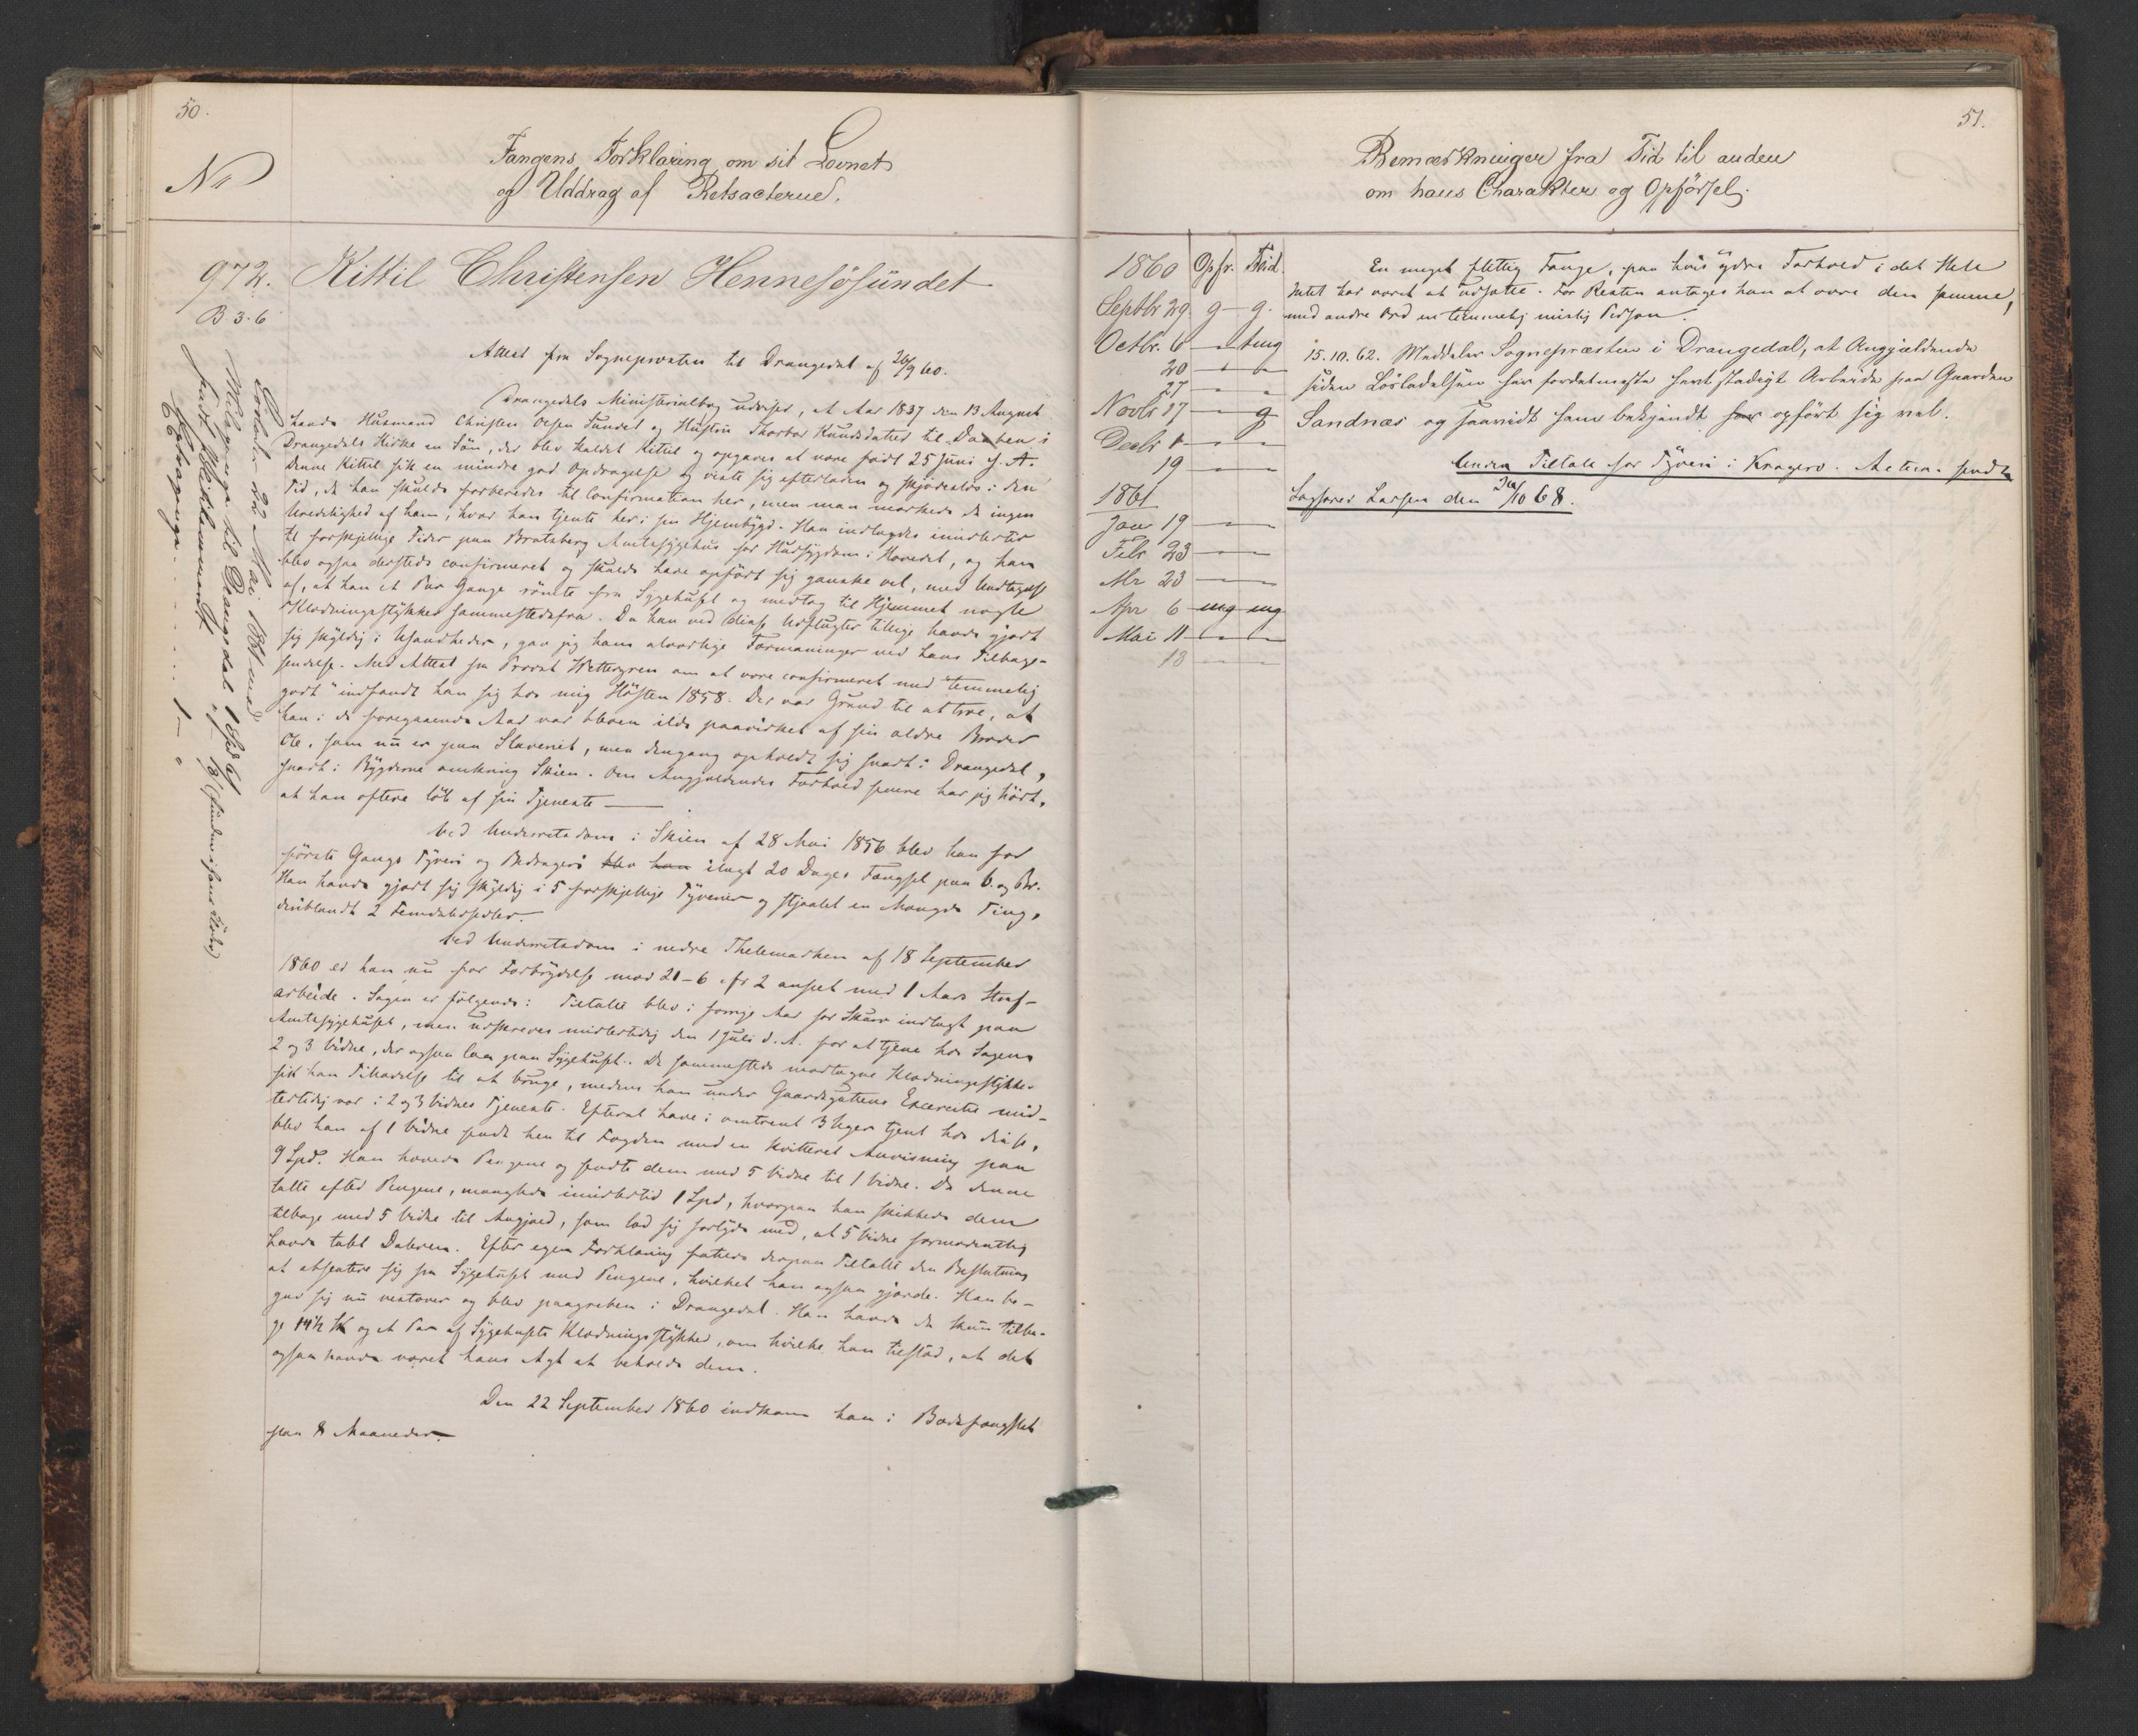 50.
No
Fangens Forklaring om sit Levnet
og Uddrag af Retsacterne.
972. Kittil Christensen Hennesøsundet
B 3.6
Attest fra Sogneprесten til Drangedal af 26/9 60.
Drangedals Ministerialbog udviser, at Aar 1837 den 13 August
havde Husmand Christen Olsen Sundet og Hustru Thorbor Knudsdatter til Daaben i
Drangedals Kirke en Søn, der blev kaldet Kittil og opgaves at være født 25 Juni s. A.
Denne Kittil fik en mindre god Opdragelse og viste sig efterladen og skjødesløs i den
Tid, da han skulde forberedes til Confirmation her, men man mærkede da ingen
Uredelighed af ham, hvor han tjente her i sin Hjembygd. Han indlagdes imidlertid
til forskjellige Tider paa Bratsberg Amtssygehus for Hudsygdom i Hovedet, og han
blev ogsaa dersteds confirmeret og skulde have opført sig ganske vel, med Undtagelse
af, at han et Par Gange rømte fra Sygehuset og medtog til Hjemmet nogle
Klædningsstykker sammestedsfra. Da han ved disse Udflugter tillige havde gjort
sig skyldig i Usandheder, gav jeg ham alvorlige Formaninger ved hans Tilbage-
sendelse. Med Attest fra Provst Wettergren om at være confirmeret med "temmelig
godt" indfandt han sig hos mig Høsten 1858. Der var Grund til at troe, at
han i de foregaaende Aar var bleven ilde paavirket af sin ældre Broder
Ole, som nu er paa Slaveriet, men dengang opholdt sig snart i Drangedal,
snart i Bygderne omkring Skien. Om Angjældendes Forhold senere har jeg hørt,
at han oftere løb af sin Tjeneste
Ved Underretsdom i Skien af 28 Mai 1856 blev han for
første Gangs Tyveri og Bedrageri blev han ilagt 20 Dages Fængsel paa V. og Br.
Han havde gjort sig skyldig i 5 forskjellige Tyverier og stjaalet en Mængde Ting,
deriblandt 2 Femdalersedler.
Ved Underretsdom i nedre Thelemarken af 18 September
1860 er han nu for Forbrydelse mod 21-6 cfr 2 anseet med 1 Aars Straf-
arbeide. Sagen er følgende: Tiltalte blev i forrige Aar for Skurv indlagt paa
Amtssygehuset, men udskreves midlertidig den 1 Juli d. A. for at tjene hos Sagens
2 og 3 Vidne, der ogsaa laa paa Sygehuset. De sammesteds modtagne Klædningsstykker
fik han Tilladelse til at bruge, medens han under Gaardsguttens Exercitie mid-
lertidig var i 2 og 3 Vidnes Tjeneste. Efterat have i omtrent 3 Uger tjent hos disse,
blev han af 1 Vidne sendt hen til Fogden med en kvitteret Anvisning paa
9 Spd. Han hævede Pengene og sendte dem med 5 Vidne til 1 Vidne. Da denne
talte efter Pengene, manglede imidlertid 1 Spd, hvorpaa han skikkede dem
tilbage med 5 Vidne til Angjæld, som lod sig forlyde med, at 5 Vidne formodentlig
havde tabt Daleren. Efter egen Forklaring fattede derpaa Tiltalte den Beslutning
at absentere sig fra Sygehuset med Pengene, hvilket han ogsaa gjorde. Han be-
gav sig nu vestover og blev paagreben i Drangedal. Han havde da kun tilba-
ge 14½ Sk og et Par af Sygehusets Klædningsstykker, om hvilke han tilstod, at det
ogsaa havde været hans Agt at beholde dem.
Den 22 September 1860 indkom han i Bodsfængslet
paa 8 Maaneder.
Løsladt 22 Mai 1861 med
Milepenge til Drangedal
51.
Bemærkninger fra Tid til anden
om hans Charakter og Opførsel.
1860 Opfr. Flid.
Septbr 29. g - g.
Octbr. 6 - tmg
20 - -
27 - -
Novbr 17 - g
Decbr 1 - -
19 - -
1861
Janr 19 - -
Febr 23 - -
Mr 23 - -
Apr 6 - mg mg
Mai 11 - -
18 - -
En meget flittig Fange, paa hvis ydre Forhold i det Hele
Intet har været at udsætte. For Resten antages han at være den samme,
med andre Ord en temmelig mislig Person.
15.10.62. Meddeler Sognepræsten i Drangedal, at Angjældende
siden Løsladelsen har fordetmeste havt stadigt Arbeide paa Gaarden
Sandnæs og saavidt ham bekjendt har opført sig vel.
Under Tiltale for Tyveri i Kragerø. Acterne sendt
Sagfører Larsen den 20/10 68.